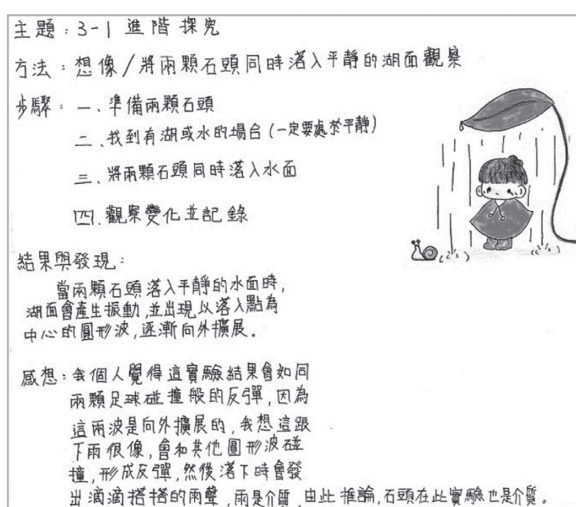 主題：3-1 進階探究
方法：想像/將兩顆石頭同時落入平靜的湖面觀察
步驟：一、準備兩顆石頭
二、找到有湖或水的場合(一定要處於平靜)
三、將兩顆石頭同時落入水面
四、觀察變化並記錄
結果與發現：
當兩顆石頭落入平靜的水面時，
湖面會產生振動，並出現以落入點為
中心的圓形波，逐漸向外擴展。
感想：我個人覺得這實驗結果會如同
兩顆足球碰撞般的反彈，因為
這兩波是向外擴展的，我想這跟
下雨很像，會和其他圓形波碰
撞，形成反彈，然後落下時會發
出滴滴搭搭的雨聲，雨是介質，由此推論，石頭在此實驗也是介質。